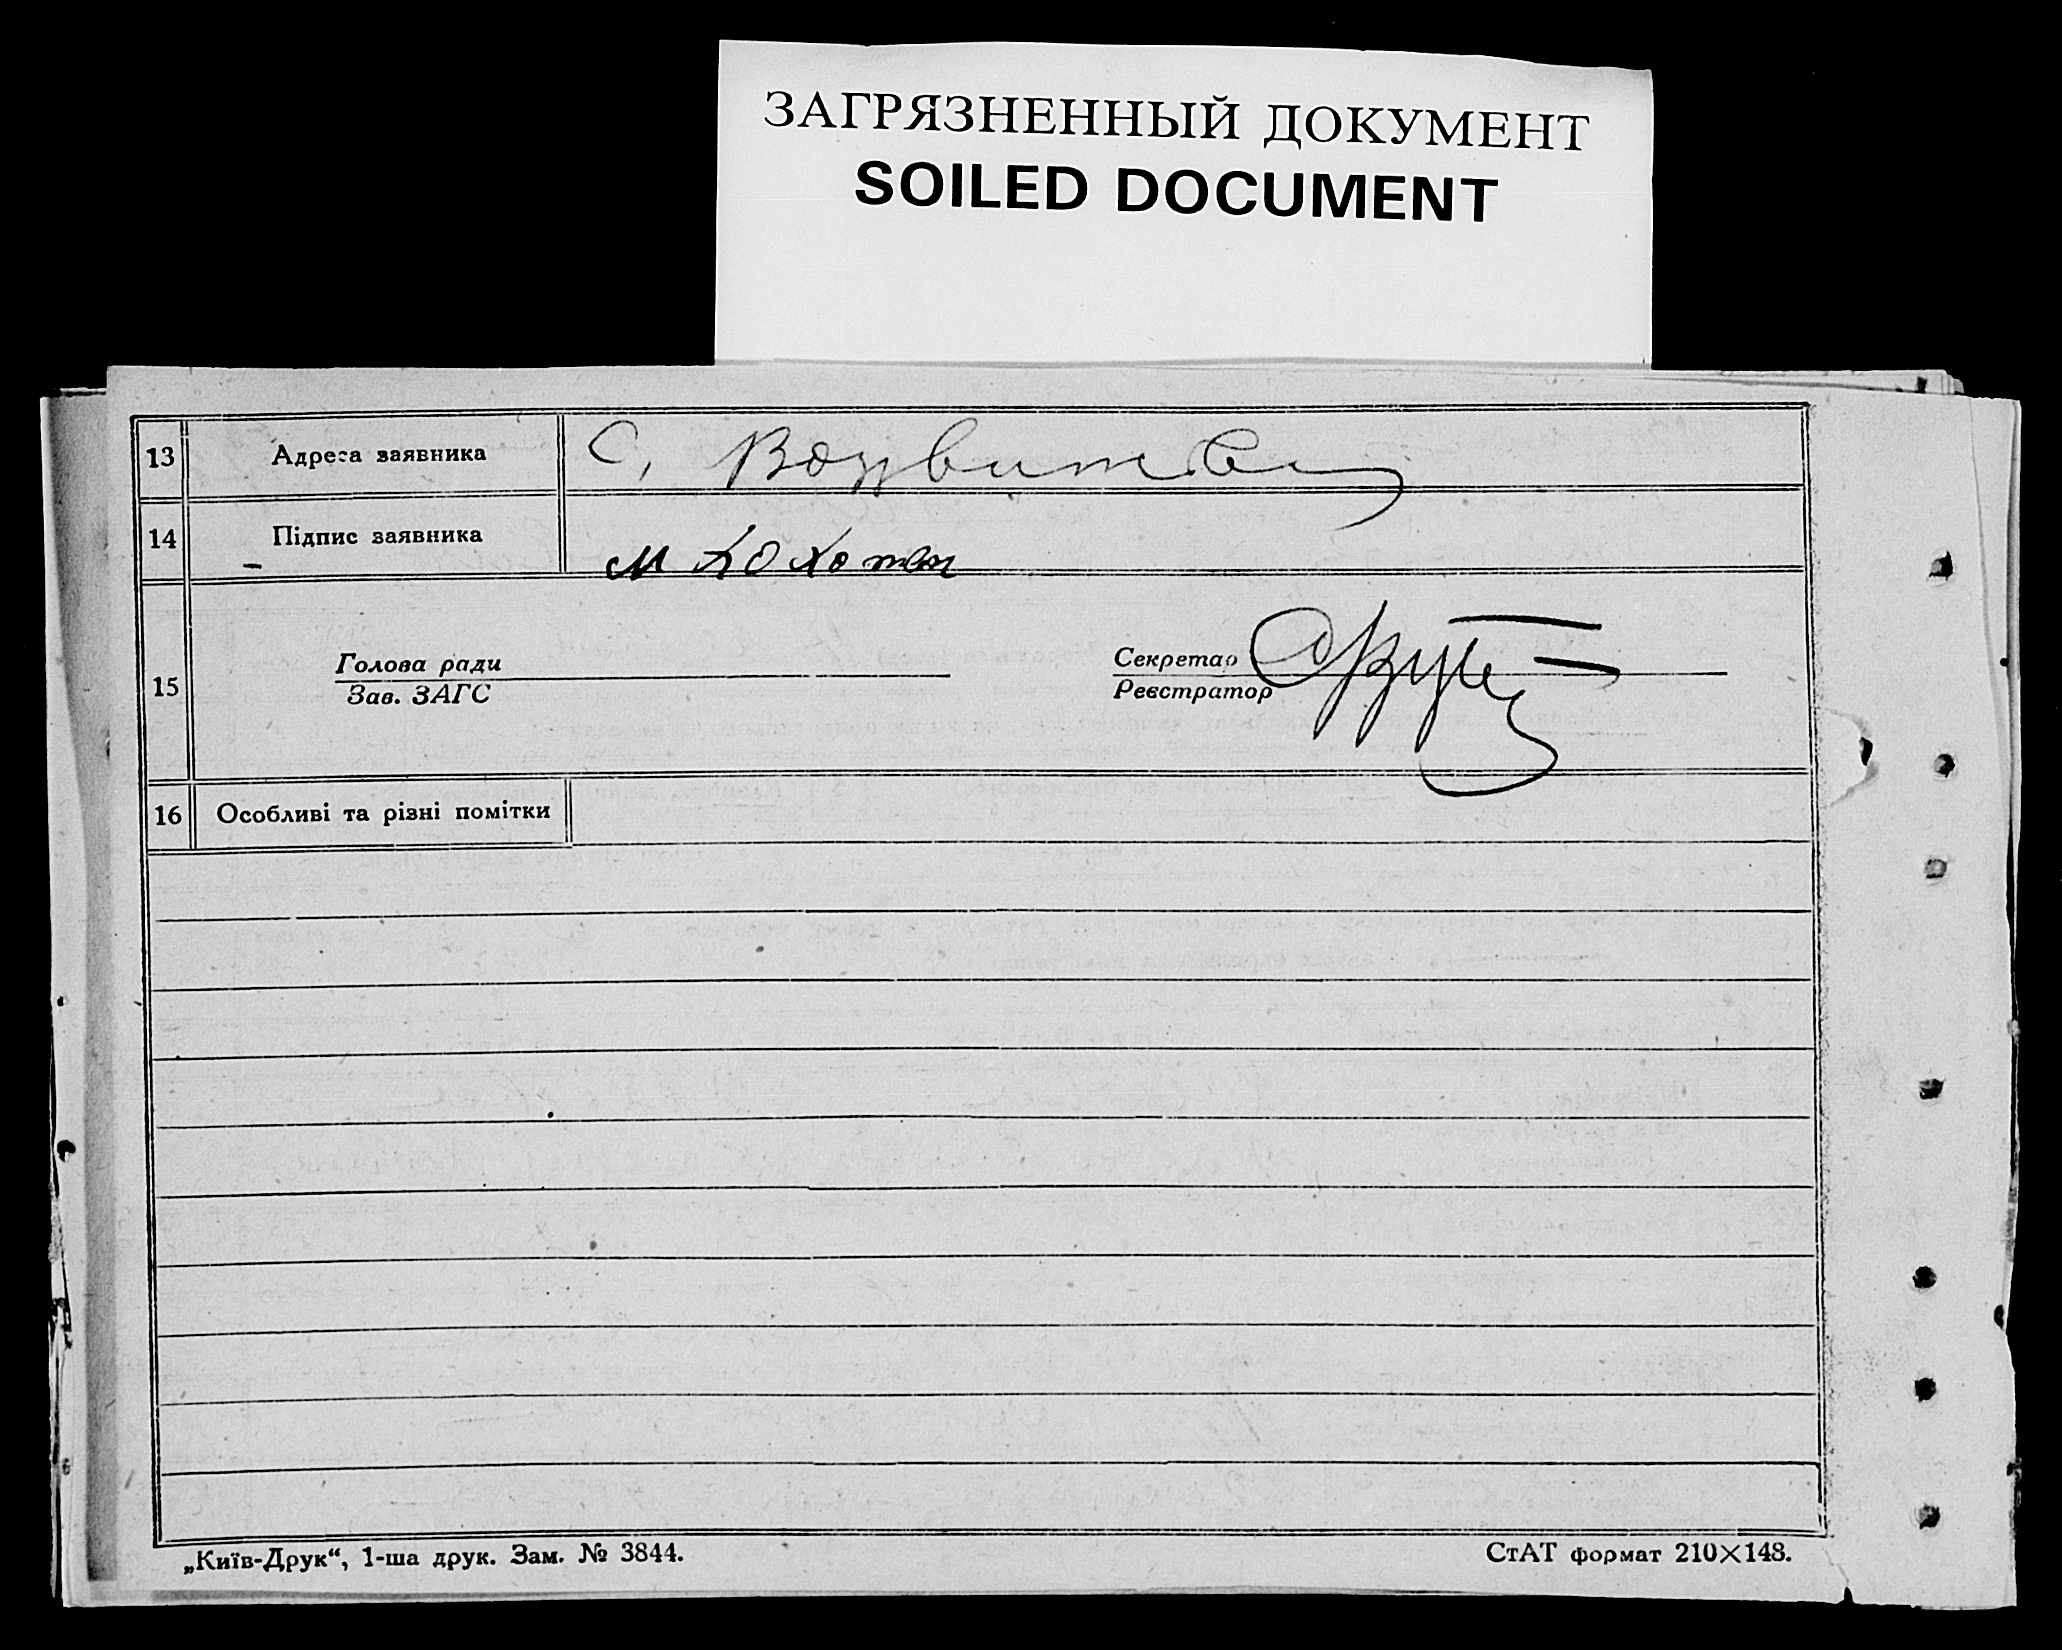 ЗАГРЯЗНЕННЫЙ ДОКУМЕНТ
SOILED DOCUMENT
13 Адреса заявника С.
14 Підпис заявника М
15
Голова ради
Зав. ЗАГС
Секретар
Реєстратор
16 Особливі та різні помітки
„Київ-Друк“, 1-ша друк. Зам. № 3844.
СтАТ формат 210×148.